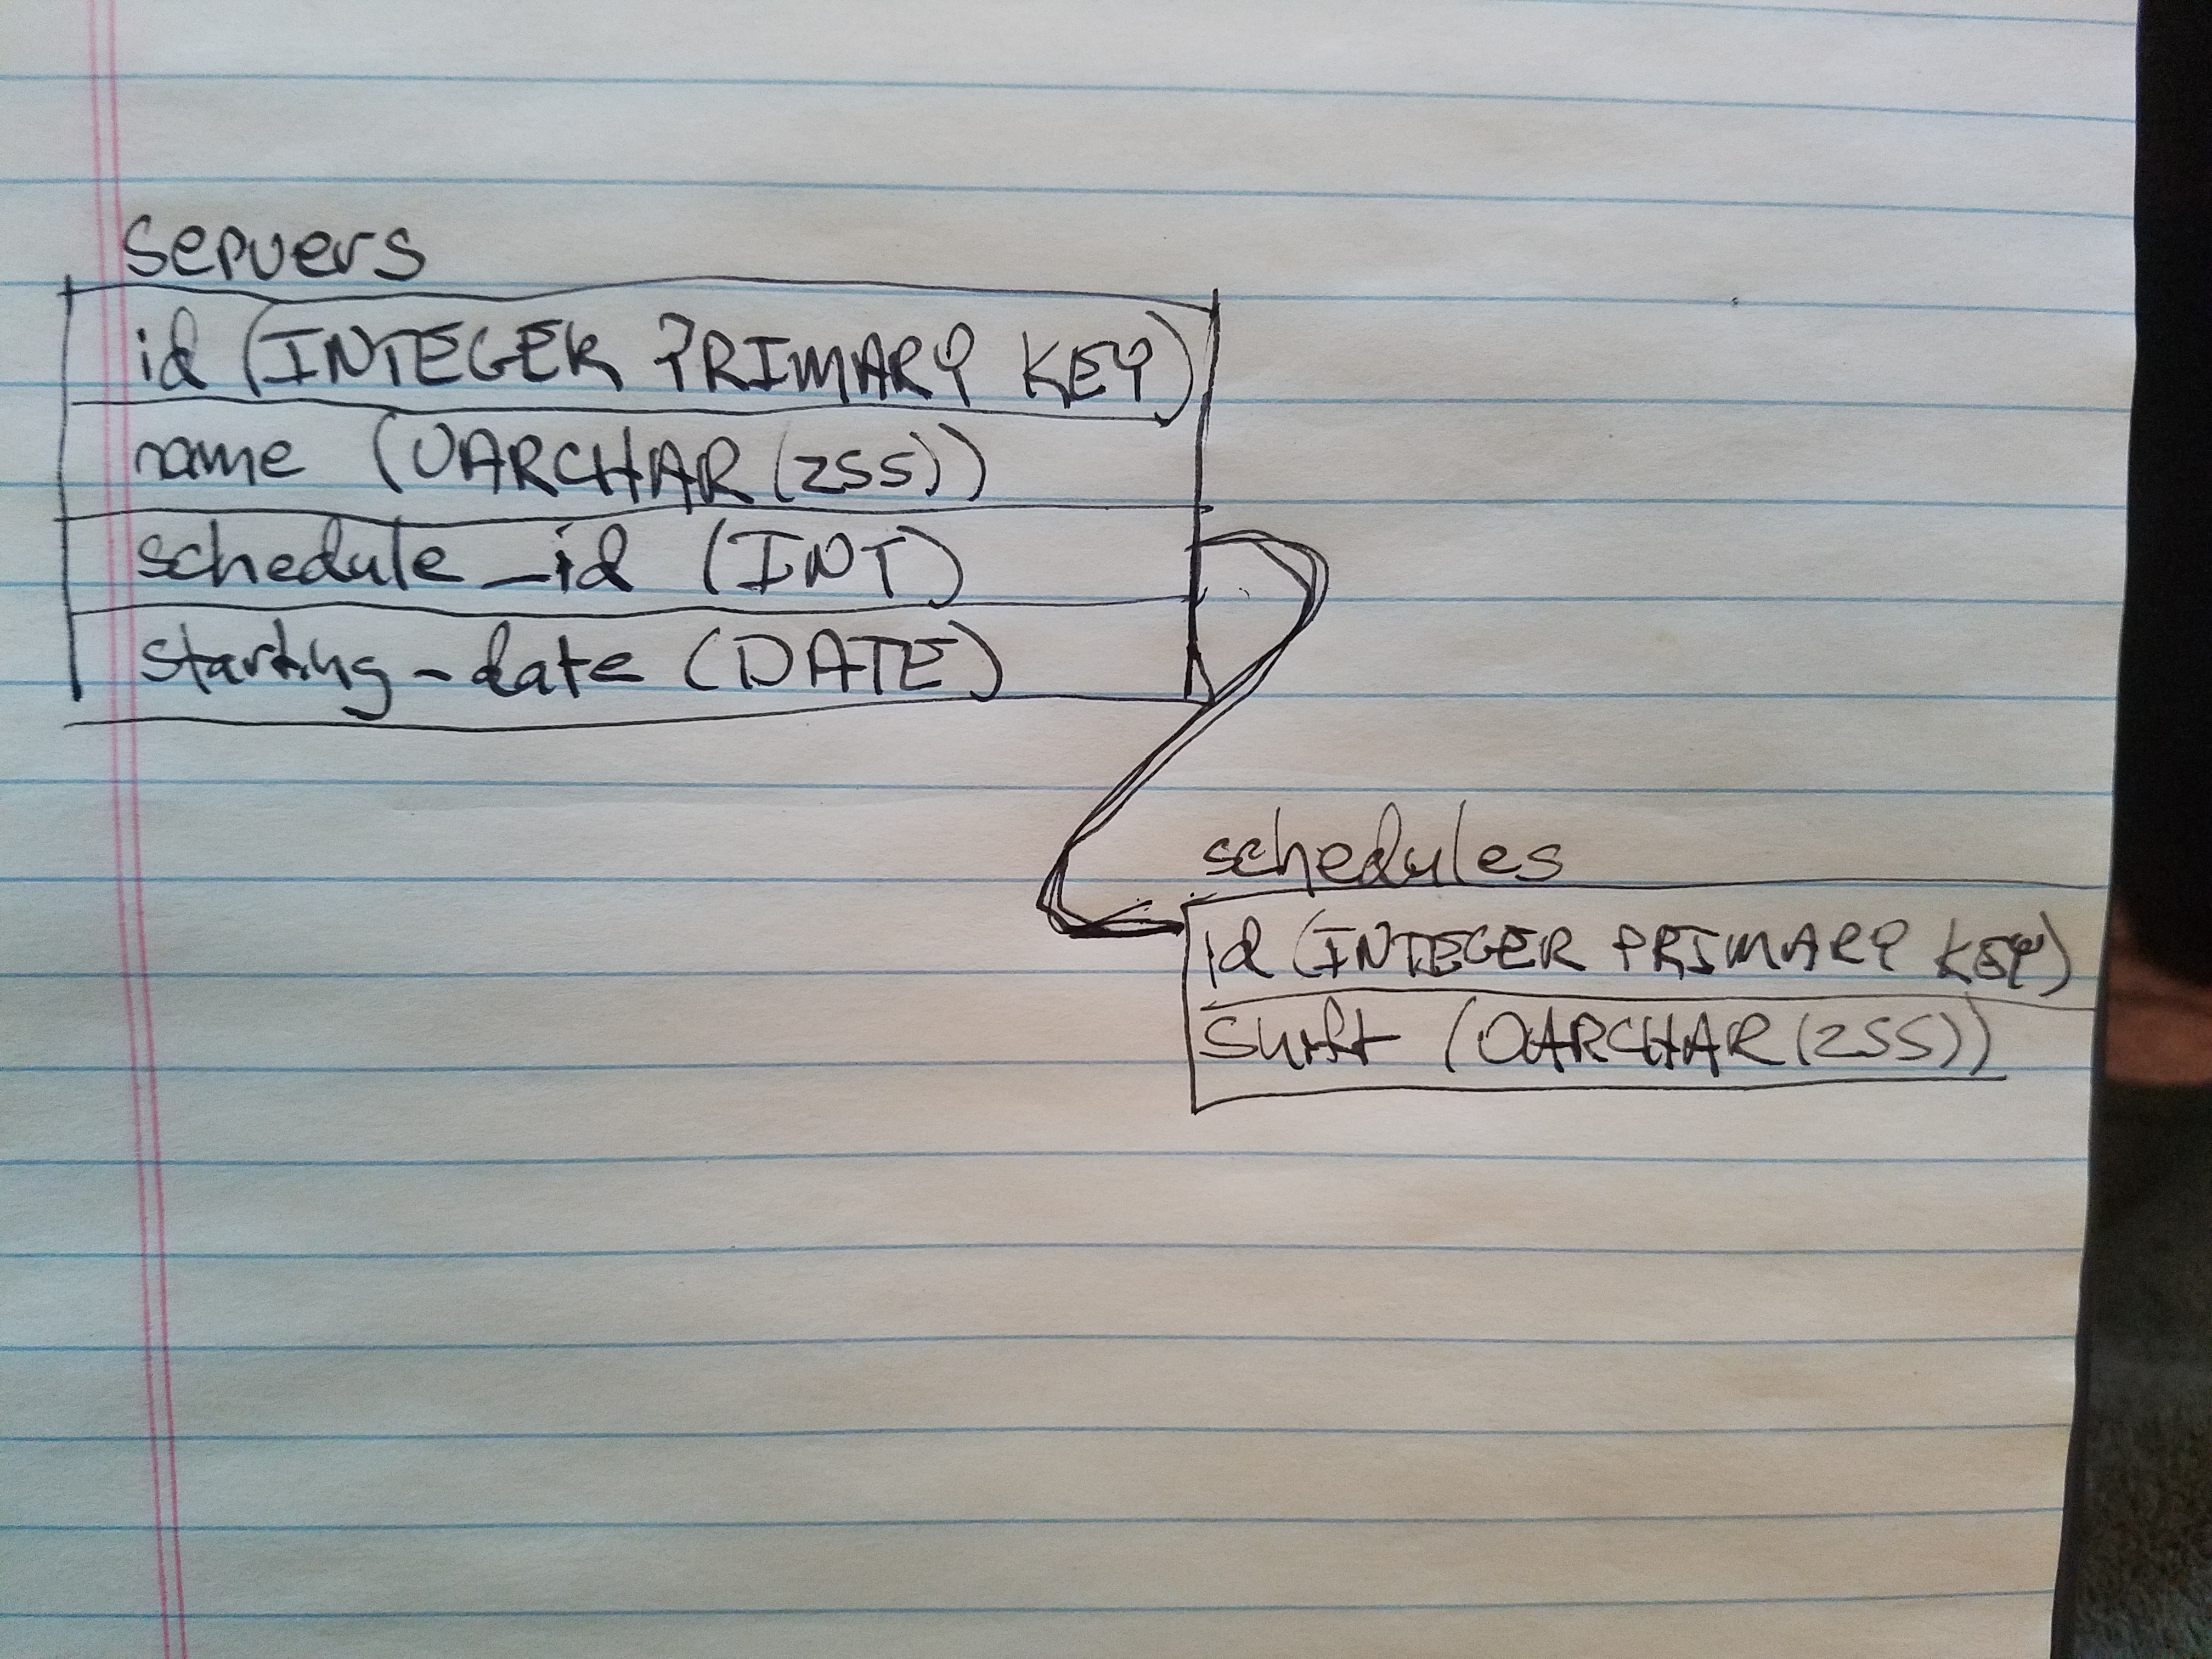 servers
id (INTEGER PRIMARY KEY)
name (VARCHAR(255))
schedule_id (INT)
starting-date (DATE)
schedules
id (INTEGER PRIMARY KEY)
shift (VARCHAR(255))